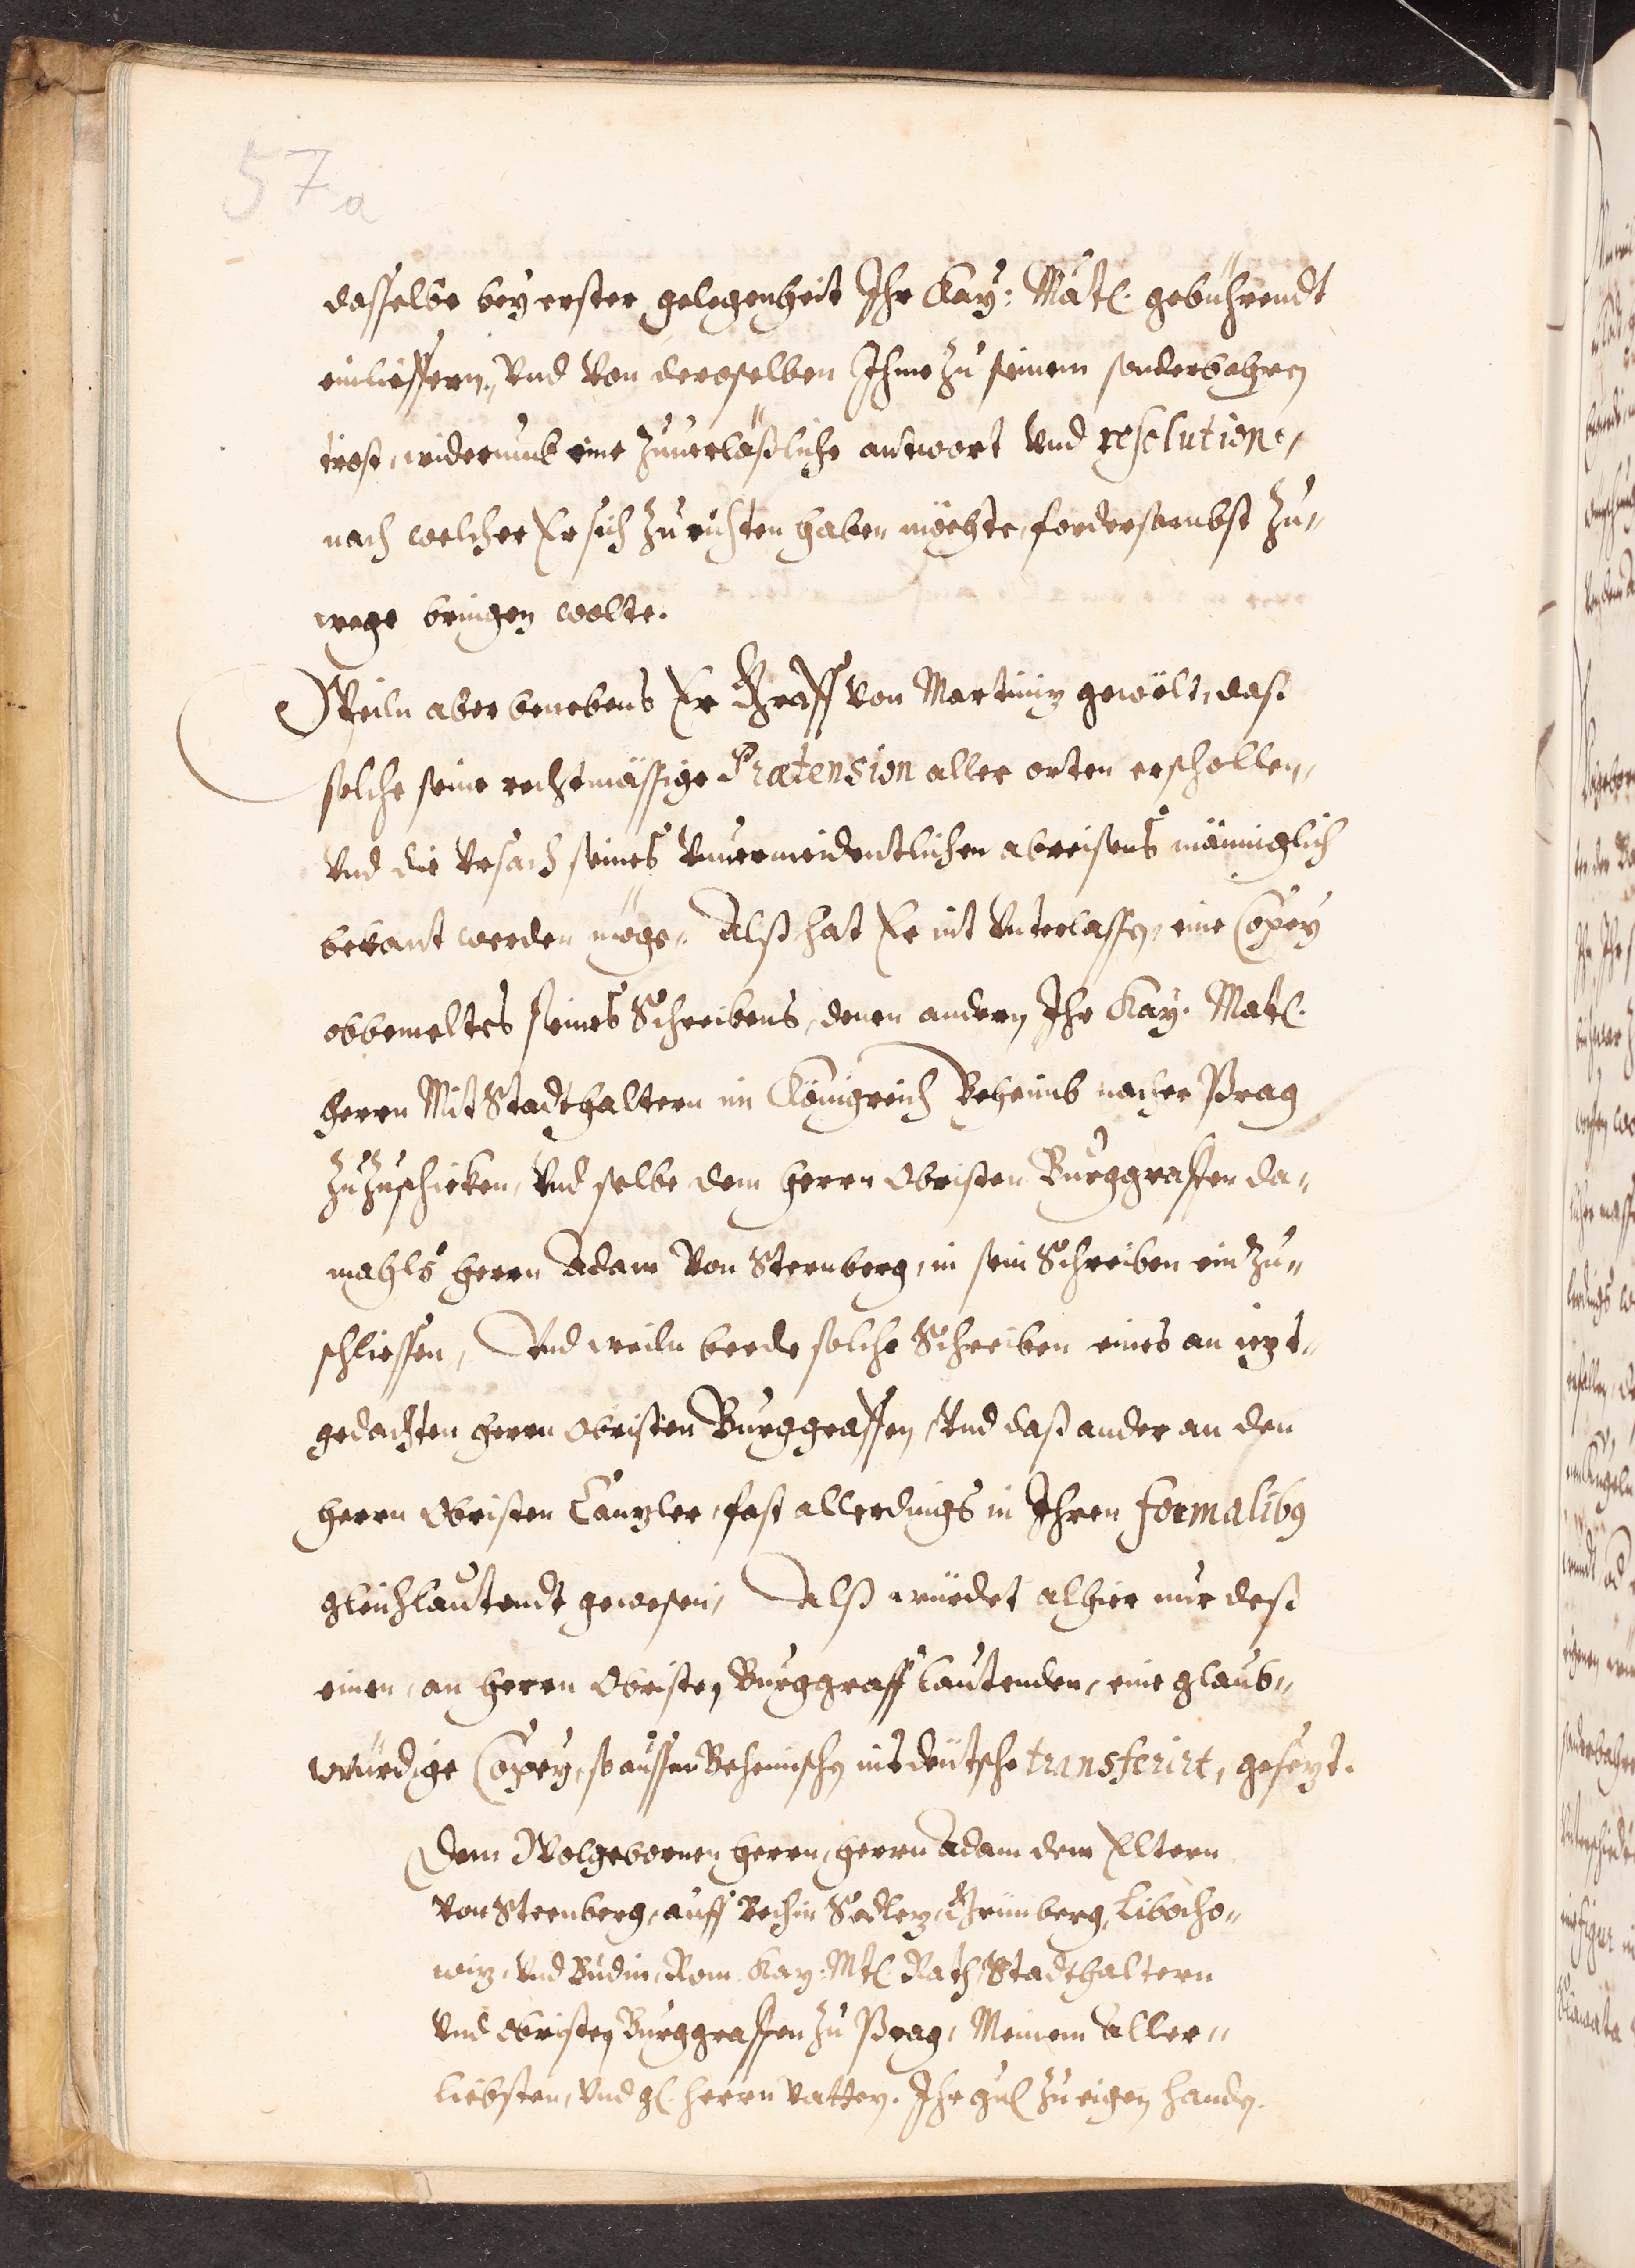 57a
dasselbe bey erster gelegenheit Ihr Kay: Matl. gebührendt
einlieffern, Vnd von deroselben Ihme zu seinem sonderbahren
trost, widerumb eine zuuerläßliche antwort Vnd resolution,
nach welcher Er sich zu richten haben möchte, fordersambst zu-
wege bringen wolte.
Weiln aber benebens Er Graff von Martiniz gewölt, dass
solche seine rechtmässige Prætension aller orten erschollen,
Vnd die Vrsach seines Vnuermeidentlichen abreisens männiglich
bekant werden möge, Alß hat Er nit Vnterlassen, eine Copey
obbemeltes seines Schreibens, denen andern Ihr Kay. Matl.
herrn Mit Stadthaltern im Königreich Beheimb nacher Prag
zuzuschicken, Vnd selbe dem herrn Obristen Burggraffen da-
mahls herrn Adam Von Sternberg, in sein Schreiben ein zu-
schliessen, Vnd weiln beede solche Schreiben eines an iezt-
gedachten herrn Obristen Burggraffen, Vnd daß ander an den
herrn Obristen Canzler, fast allerdings in Ihren formalibus
gleichlautendt gewesen, Alß würdet alhier nur dess
einen, an herrn Obristen Burggraff lautenden, eine glaub-
würdige Copey, so ausser Behemischen ins deutsche transferirt, gesezt.
Dem Wolgebornen herrn, herrn Adam dem Eltern
von Sternberg, auff Bechin Sedlez, Grünberg, Libocho-
wiz, Vnd Budin, Rom. Kay: Mtl. Rath, Stadthaltern
Vnd Obristen Burggraffen zu Prag, Meinem aller-
liebsten, Vnd gl. herrn Vattern. Ihr gnl zu eigen handen.